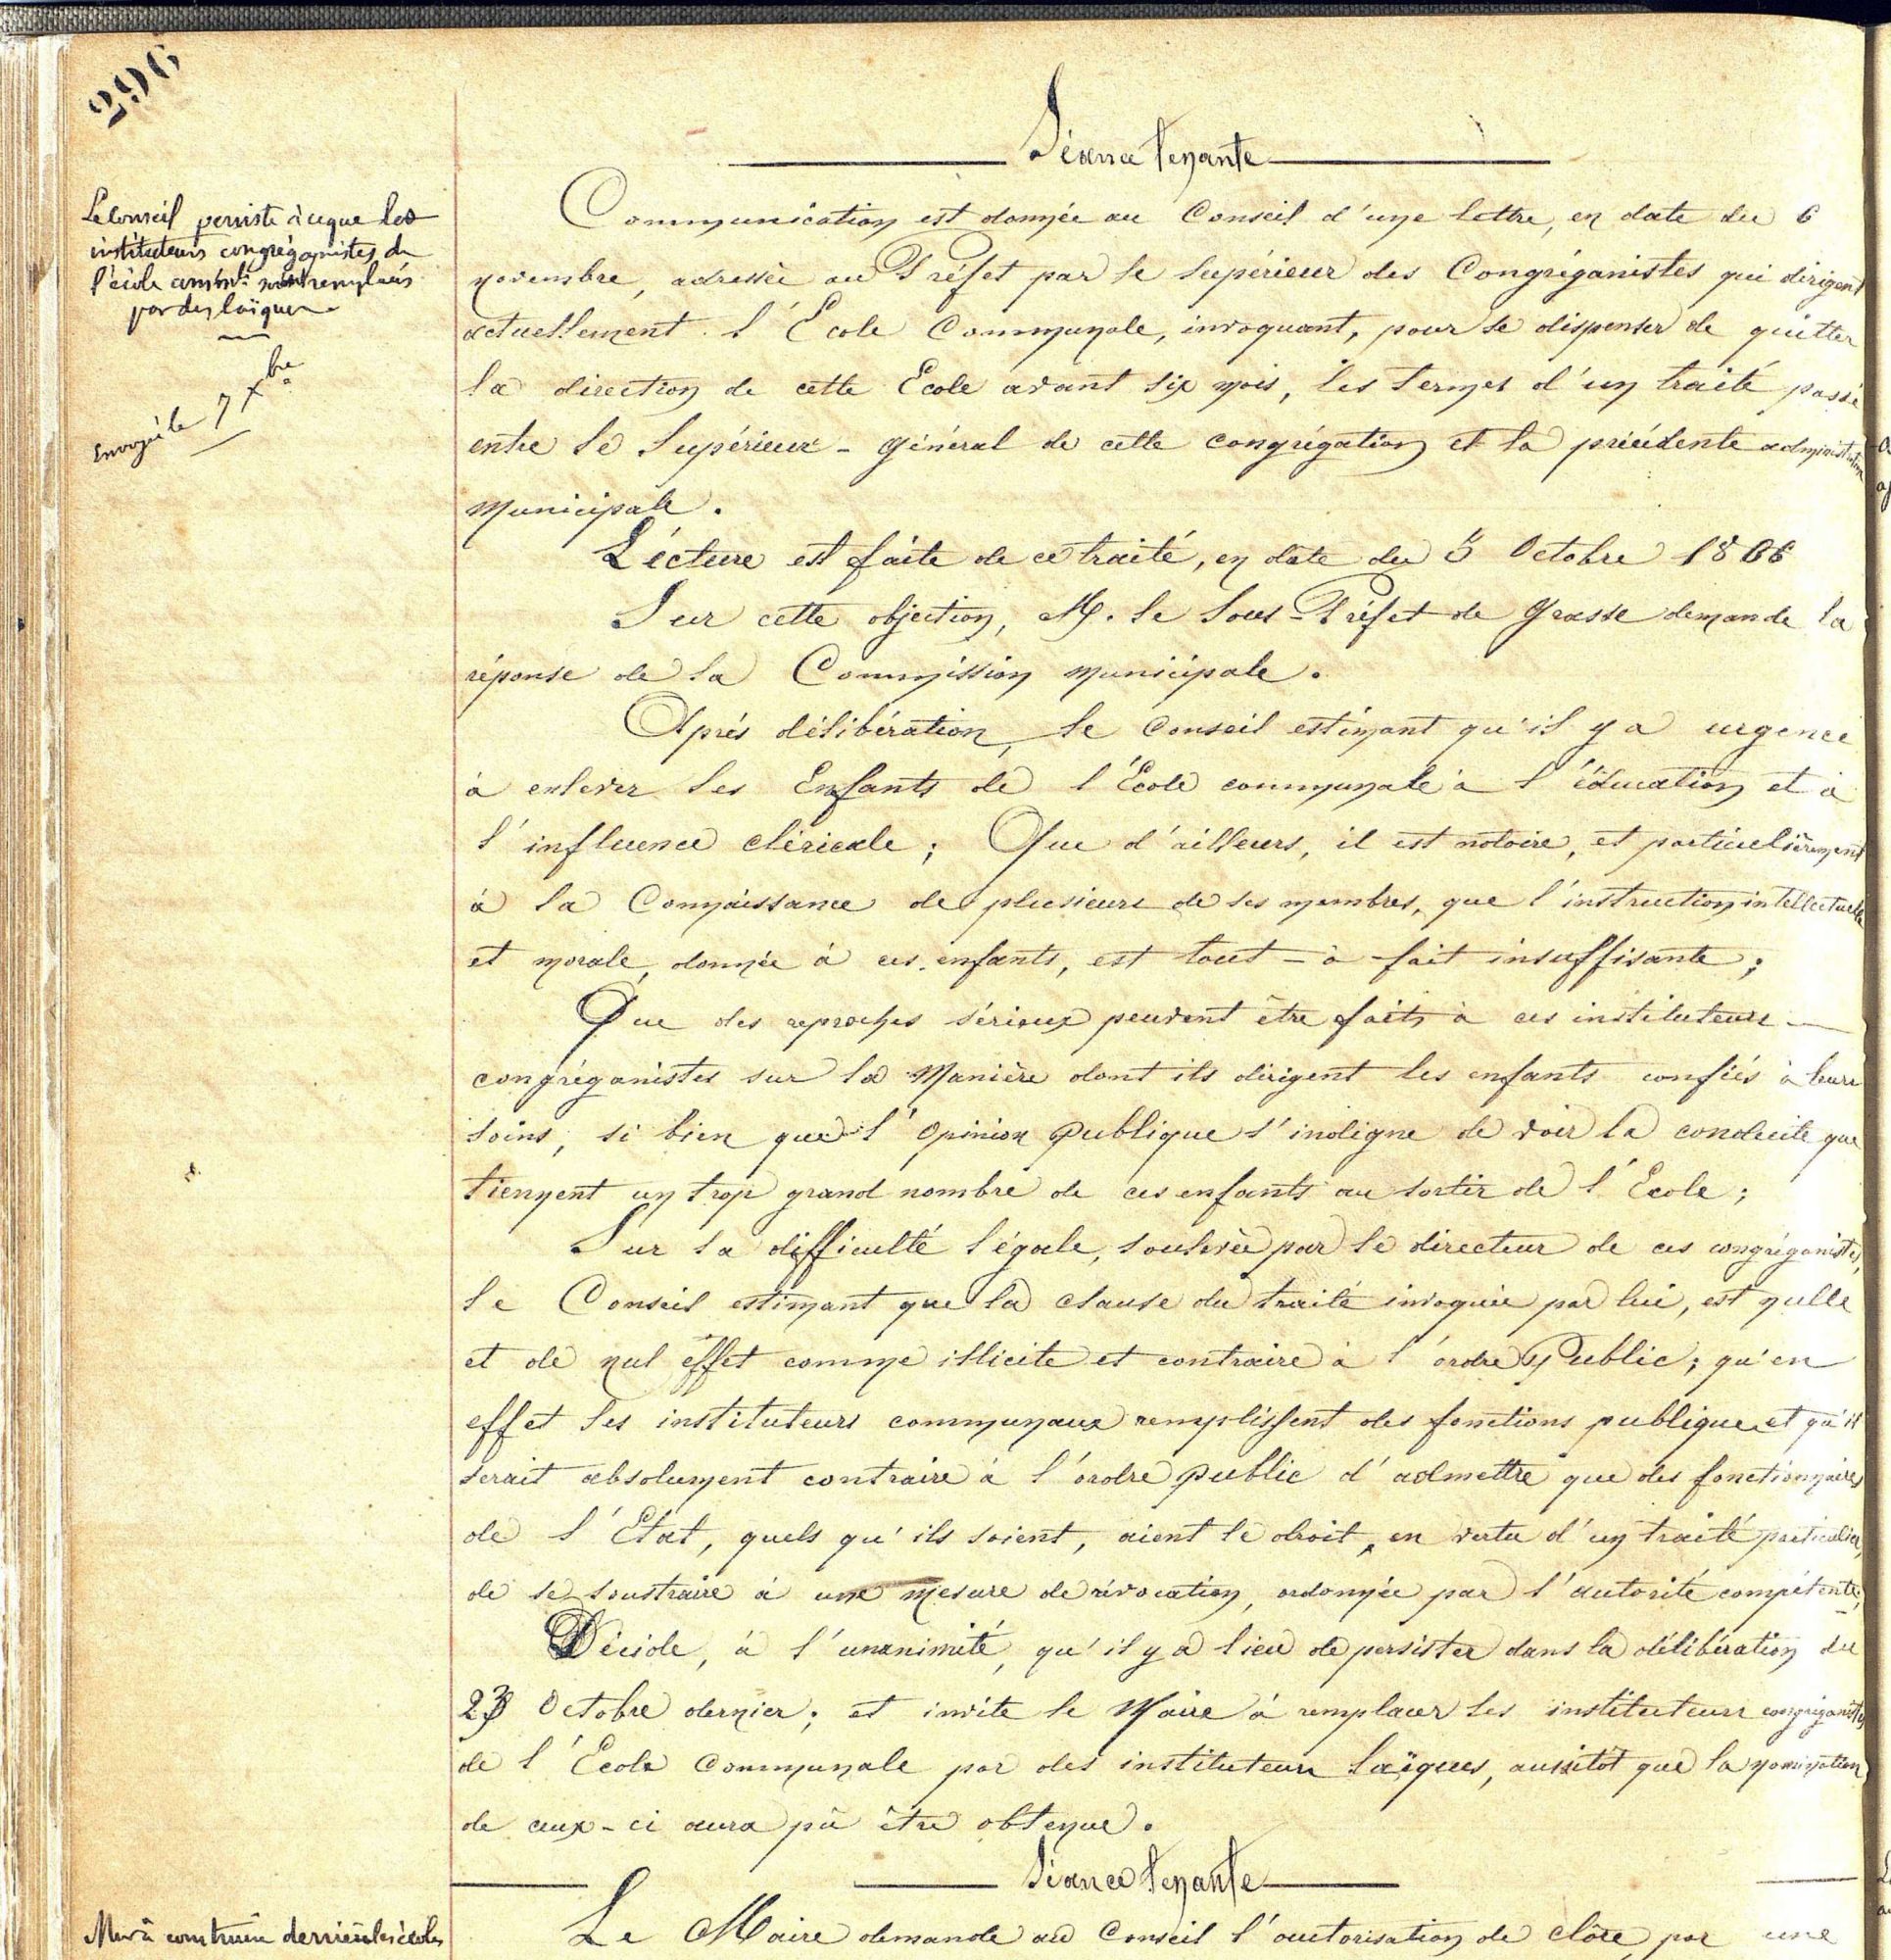 296
Séance tenante
Le Conseil persiste à ce que les
instituteurs congréganistes de
l'école comnle soient remplacés
par des laïques
Envoyé le 7 Xbre
Communication est donnée au Conseil d'une lettre, en date du 6
novembre, adressée au Préfet par le Supérieur des Congréganistes qui dirigent
actuellement l'École Communale, invoquant, pour se dispenser de quitter
la direction de cette École avant six mois, les termes d'un traité passé
entre le Supérieur-général de cette congrégation et la précédente administration
Municipale.
Lécture est faite de ce traité, en date du 5 Octobre 1866
Sur cette objection, M. le Sous-Préfet de Grasse demande la
réponse de la Commission Municipale.
Après délibération, le Conseil estimant qu'il y a urgence
à enlever les Enfants de l'École communale à l'éducation et à
l'influence cléricale; Que d'ailleurs, il est notoire, et particulièrement
à la Connaissance de plusieurs de ses membres, que l'instruction intellectuelle
et morale, donnée à ces enfants, est tout-à-fait insuffisante;
Que des reproches sérieux peuvent être faits à ces instituteurs
congréganistes sur la Manière dont ils dirigent les enfants confiés à leurs
soins, si bien que l'Opinion Publique s'indigne de voir la conduite que
tiennent un trop grand nombre de ces enfants au sortir de l'École;
Sur la difficulté légale, soulevée par le directeur de ces congréganistes,
le Conseil estimant que la clause du traité invoquée par lui, est nulle
et de nul effet comme illicite et contraire à l'ordre Public; qu'en
effet les instituteurs communaux remplissent des fonctions publiques et qu'il
serait absolument contraire à l'ordre public d'admettre que des fonctionnaires
de l'État, quels qu'ils soient, aient le droit, en vertu d'un traité particulier,
de se soustraire à une mesure de révocation, ordonnée par l'autorité compétente,
Décide, à l'unanimité, qu'il y a lieu de persister dans la délibération du
23 Octobre dernier; et invite le Maire à remplacer les instituteurs congréganistes
de l'École Communale par des instituteurs laïques, aussitôt que la nomination
de ceux-ci aura pû être obtenue.
Séance tenante
Mur à construire derrière les écoles
Le Maire demande au Conseil l'autorisation de clôre, par une